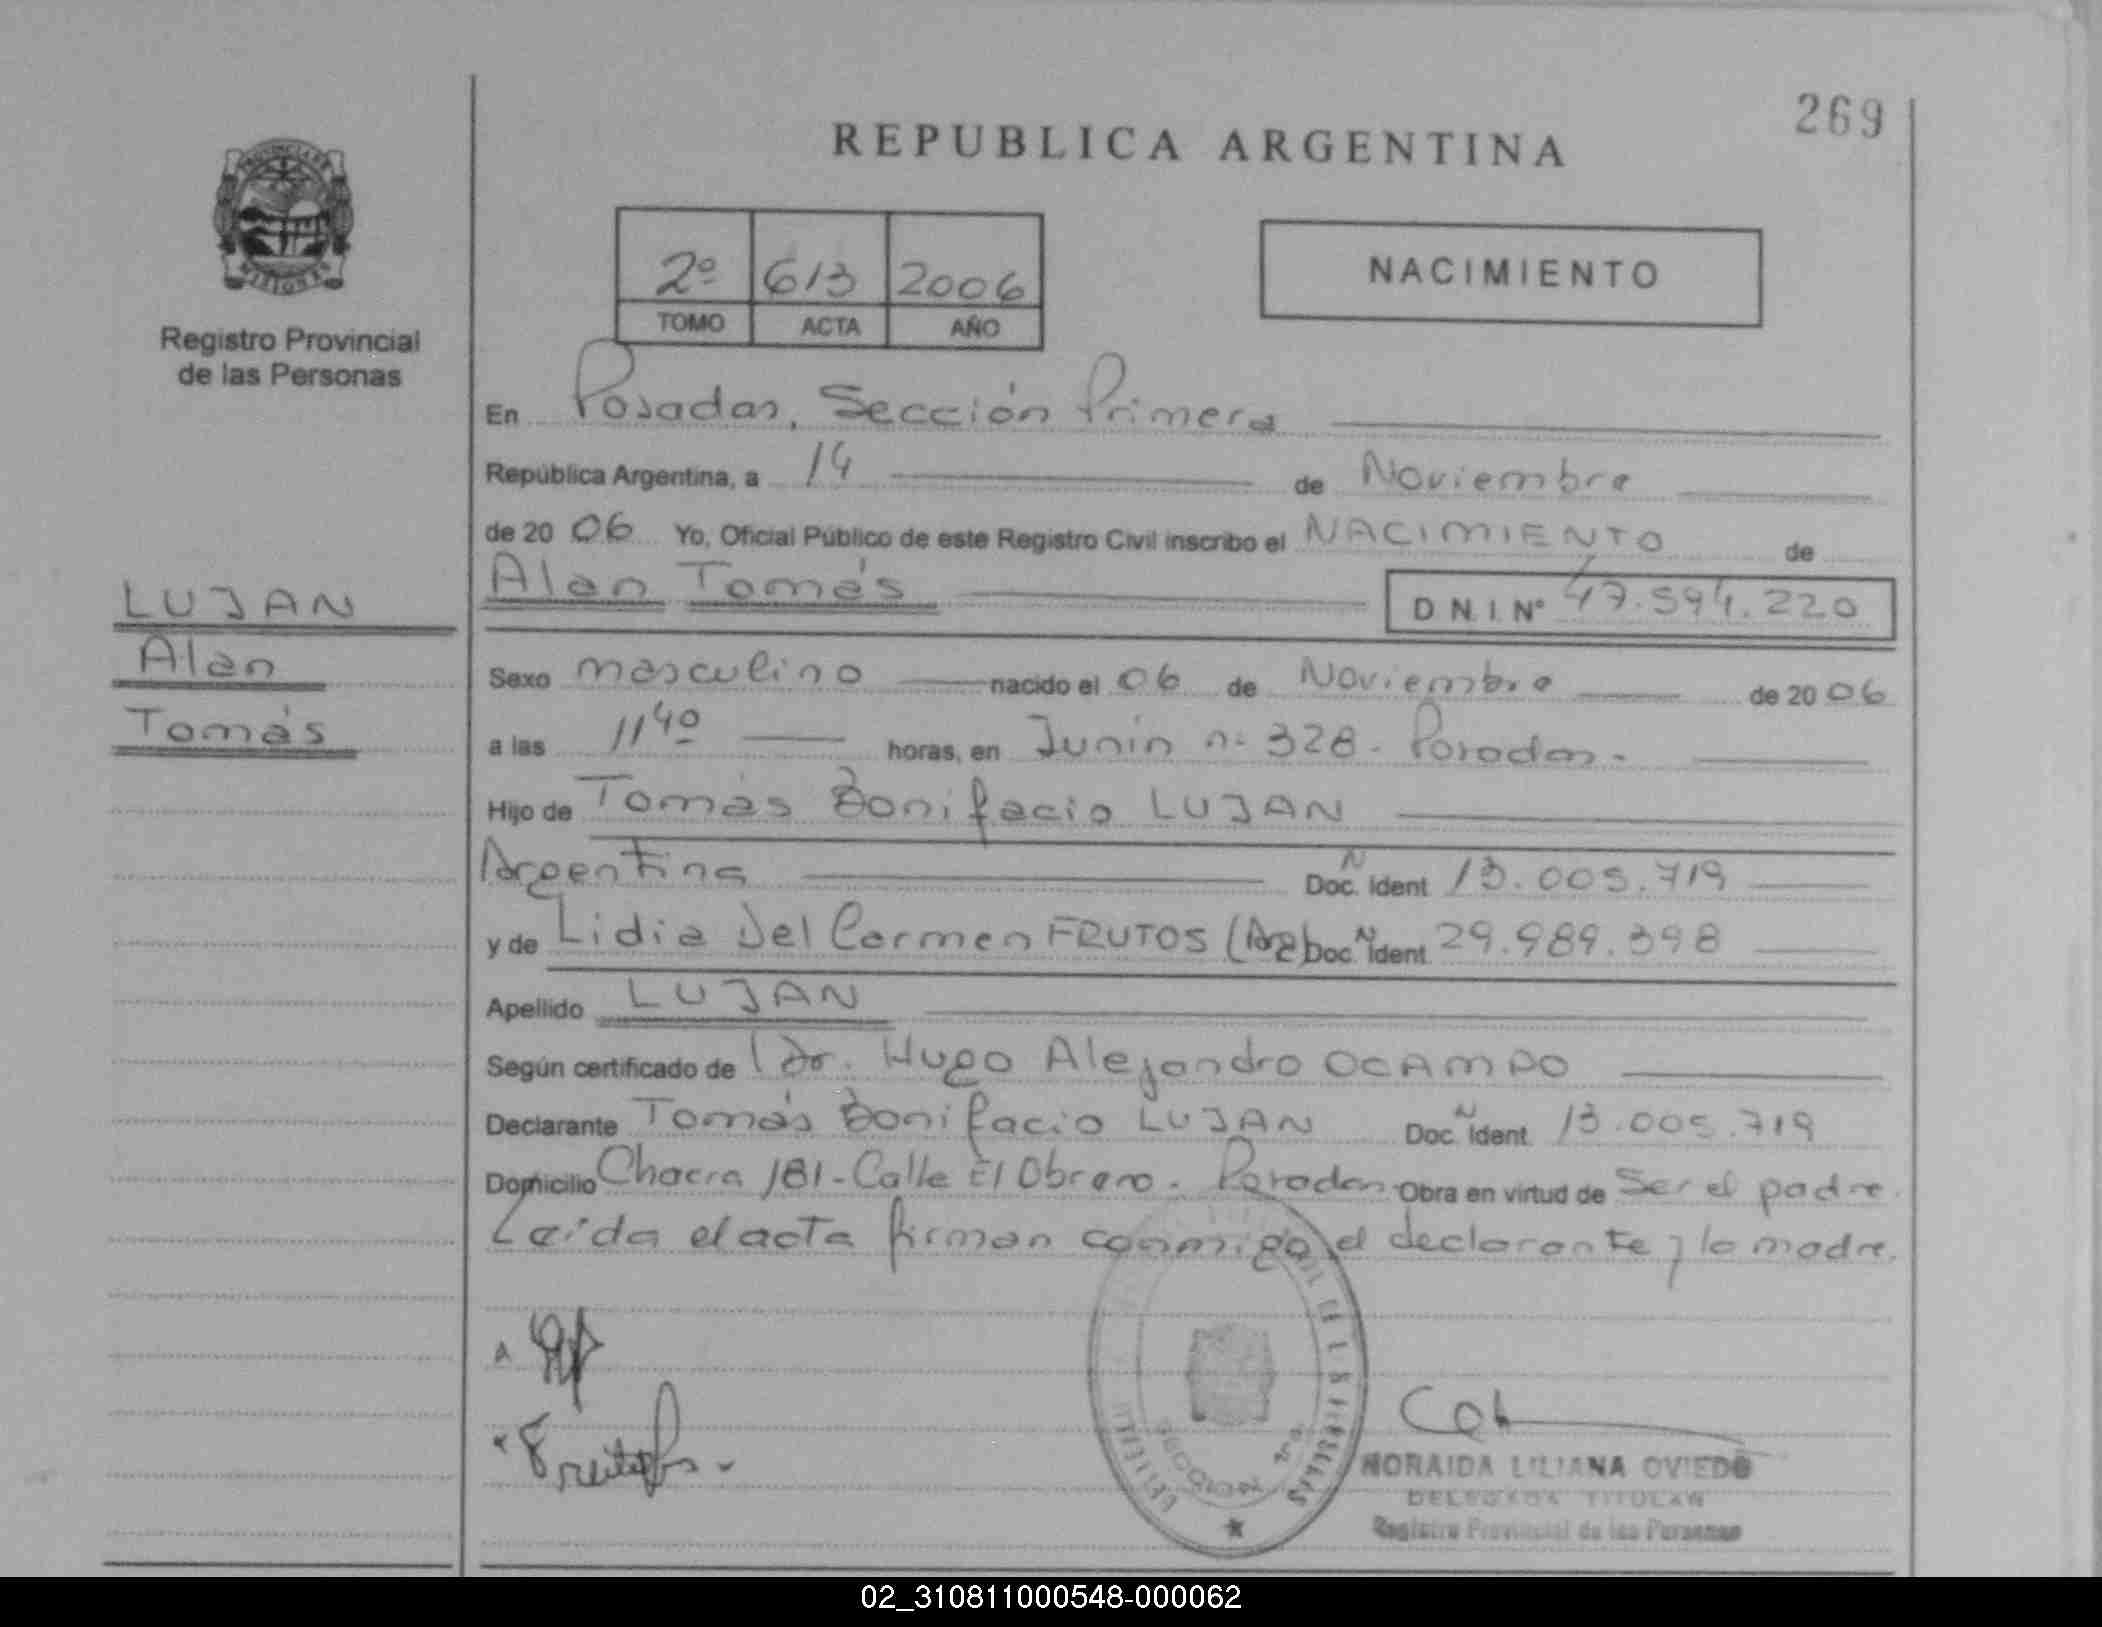 269
REPUBLICA ARGENTINA
PROVINCIA DE
MISIONES
Registro Provincial
de las Personas
2º 613 2006
TOMO ACTA AÑO
NACIMIENTO
En Posadas, Sección Primera
República Argentina, a 14 de Noviembre
de 2006 Yo, Oficial Público de este Registro Civil inscribo el NACIMIENTO de
Alan Tomás D.N.I. Nº 47.594.220
LUJAN
Alan
Tomás
Sexo masculino nacido el 06 de Noviembre de 2006
a las 11 40 horas, en Junín nº 328. Posadas.
Hijo de Tomás Bonifacio LUJAN
Argentina Doc. N Ident 13.005.719
y de Lidia Del Carmen FRUTOS (Arg) Doc. N Ident 29.989.398
Apellido LUJAN
Según certificado de Dr. Hugo Alejandro OCAMPO
Declarante Tomás Bonifacio LUJAN Doc. N Ident. 13.005.719
Domicilio Chacra 181-Calle El Obrero. Posadas. Obra en virtud de Ser el padre.
Leída el acta firman conmigo el declarante y la madre.
SECCIONAL 1ra.
NORAIDA LILIANA OVIEDO
DELEGADA TITULAR
Registro Provincial de las Personas
02_310811000548-000062